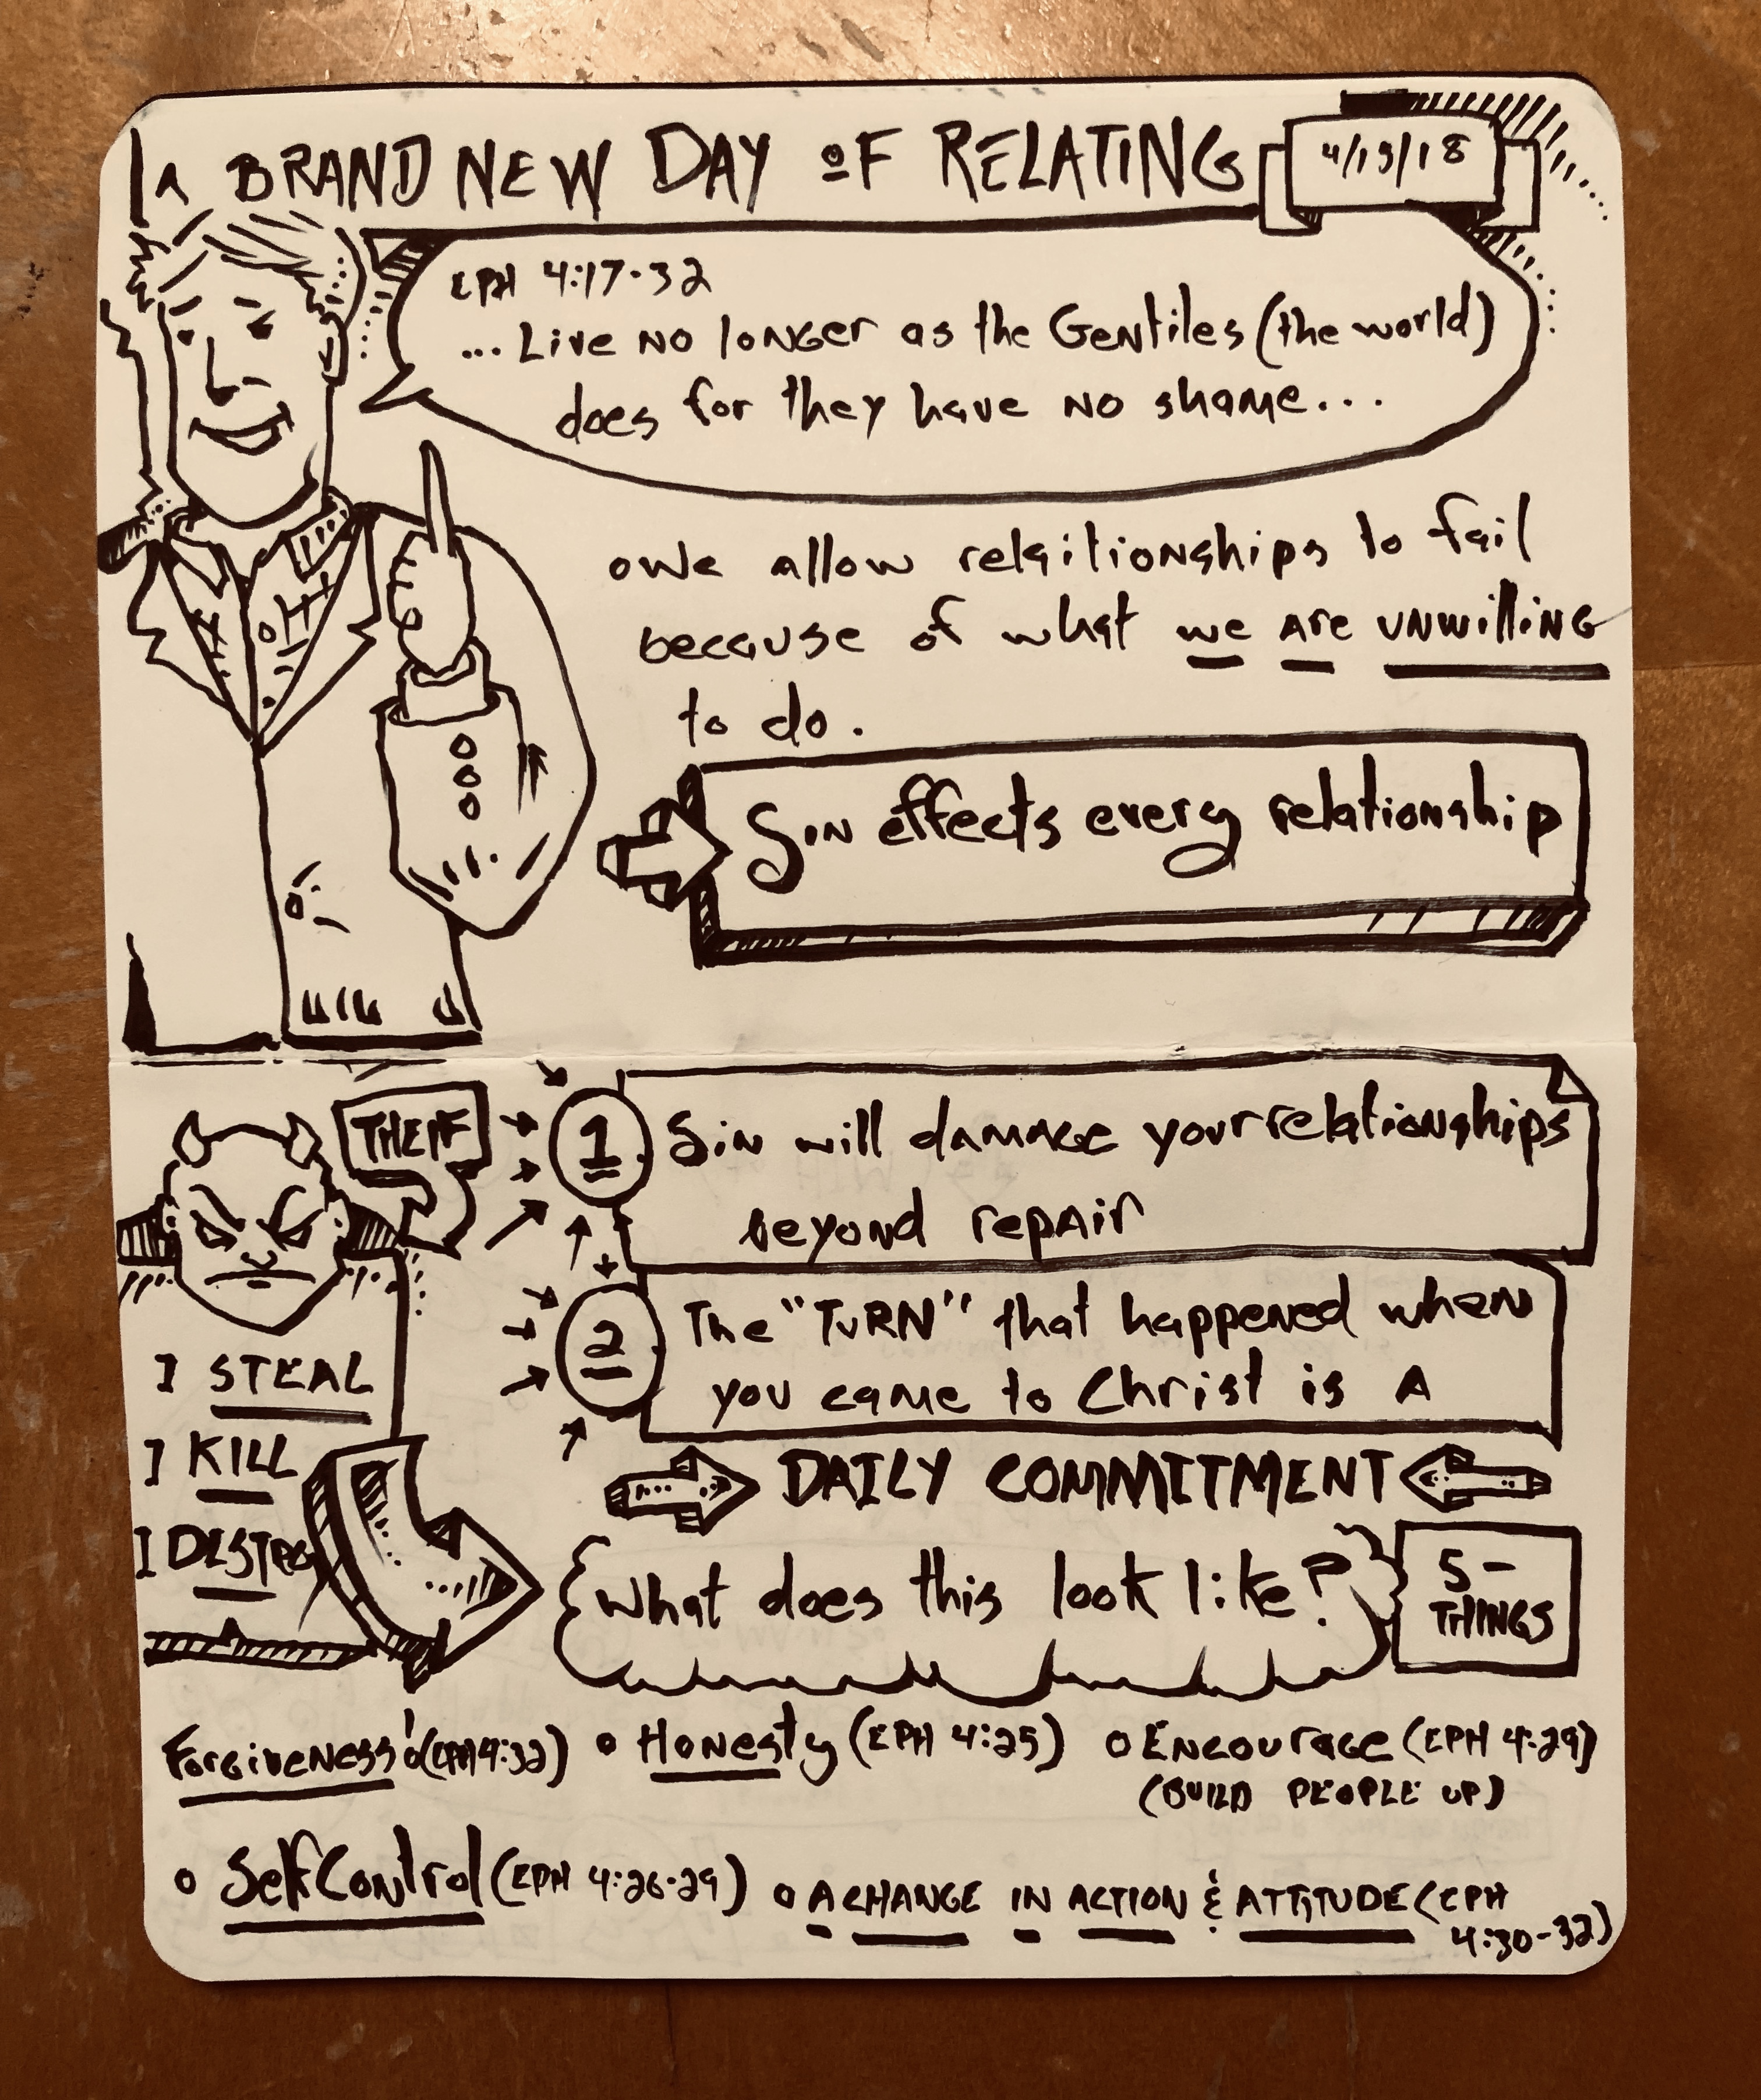 A BRAND NEW DAY OF RELATING
4/15/18
EPH 4:17-32
...Live no longer as the Gentiles (the world)
does for they have no shame...
o We allow relaitionships to fail
because of what we are unwilling
to do.
Sin effects every relationship
THEIF
1 Sin will damage your relationships
beyond repair
2 The "TURN" that happened when
you came to Christ is A
DAILY COMMITMENT
I STEAL
I KILL
I DESTROY
What does this look like?
5-
THINGS
Forgiveness! o (EPH 4:32) o Honesty (EPH 4:25) o Encourage (EPH 4:29)
(BUILD PEOPLE UP)
o Self Control (EPH 4:26-29) o A CHANGE IN ACTION & ATTITUDE (EPH
4:30-32)